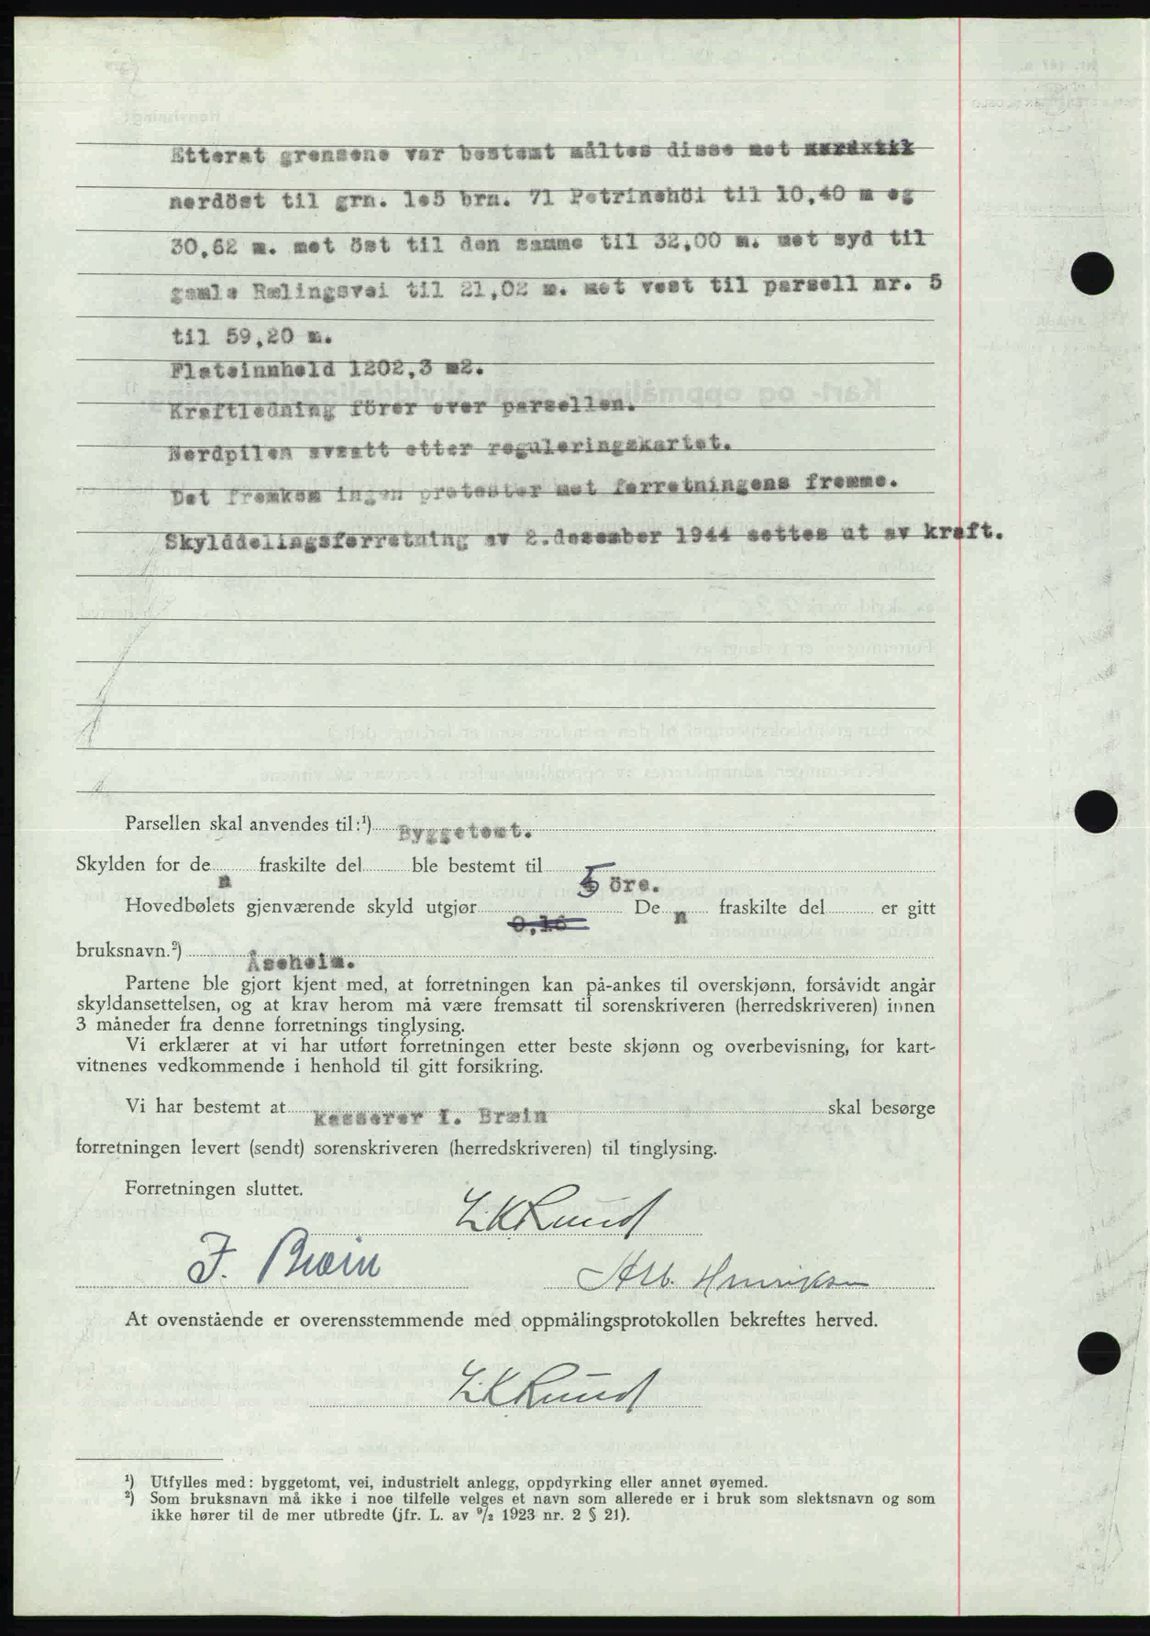 Etterat grensene var bestemt måltes disse mot
nordöst til grn. 105 brn. 71 Petrinehöi til 10,40 m og
30,62 m. mot öst til den samme til 32,00 m. mot syd til
gamle Rælingsvei til 21,02 m. mot vest til parsell nr. 5
til 59,20 m.
Flateinnhold 1202,3 m2.
Kraftledning förer over parsellen.
Nordpilen avsatt etter reguleringskartet.
Det fremkom ingen protester mot forretningens fremme.
Skylddelingsforretning av 2.desember 1944 settes ut av kraft.
Parsellen skal anvendes til:¹) Byggetomt.
Skylden for de n fraskilte del ble bestemt til 5 öre.
Hovedbølets gjenværende skyld utgjør 0,16 De n fraskilte del er gitt
bruksnavn.²) Åseheim.
Partene ble gjort kjent med, at forretningen kan på-ankes til overskjønn, forsåvidt angår
skyldansettelsen, og at krav herom må være fremsatt til sorenskriveren (herredskriveren) innen
3 måneder fra denne forretnings tinglysing.
Vi erklærer at vi har utført forretningen etter beste skjønn og overbevisning, for kart-
vitnenes vedkommende i henhold til gitt forsikring.
Vi har bestemt at kasserer I. Bræin skal besørge
forretningen levert (sendt) sorenskriveren (herredskriveren) til tinglysing.
Forretningen sluttet.
Rund
I. Bræin Alb. Henriksen
At ovenstående er overensstemmende med oppmålingsprotokollen bekreftes herved.
Rund
¹) Utfylles med: byggetomt, vei, industrielt anlegg, oppdyrking eller annet øyemed.
²) Som bruksnavn må ikke i noe tilfelle velges et navn som allerede er i bruk som slektsnavn og som
ikke hører til de mer utbredte (jfr. L. av ⁹/₂ 1923 nr. 2 § 21).